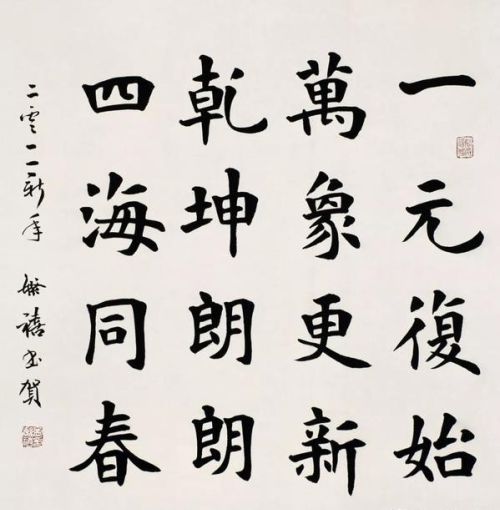 一元復始
萬象更新
乾坤朗朗
四海同春
二零一一新年
禧書賀